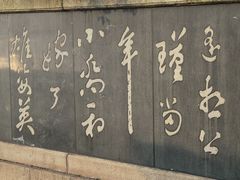 遥想公
瑾當
年
小喬初
嫁了
雄姿英